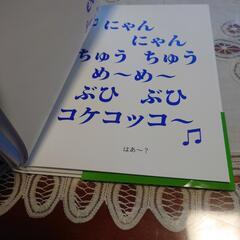 にゃん
にゃん
ちゅう ちゅう
め～め～
ぶひ ぶひ
コケコッコ～
はあ～？